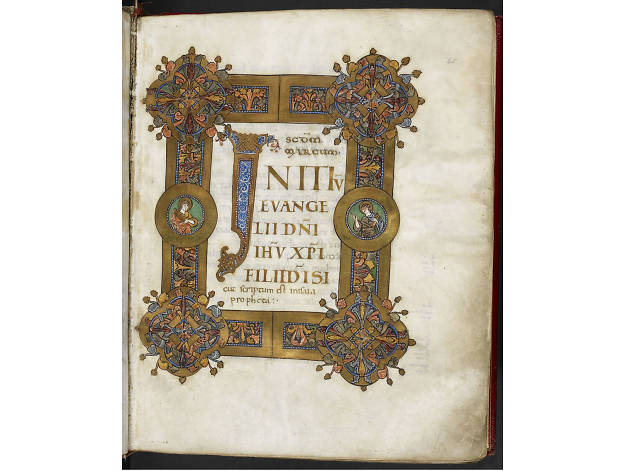 SCDM̄
MARCUM.
INITIV̄
EVANGE
LII DN̄I
IHV̄ XP̄I
FILII D̄I SI
cut scriptum est in isaia
propheta: